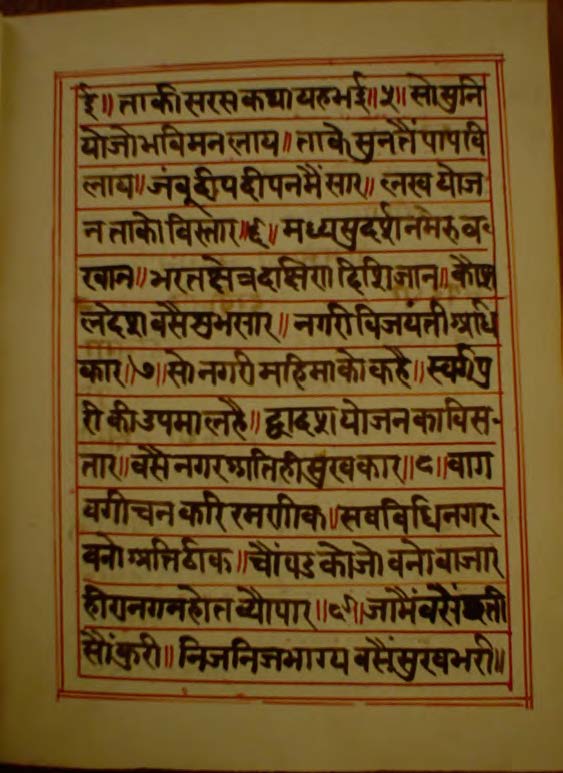 ई॥ ताकी सरस कथा यह भई॥५॥ सो सुनि
यो जो भवि मन लाय॥ ताके सुनतैं पाप वि
लाय॥ जंबूदीप दीपनमैं सार॥ लख योज
न ताको विस्तार॥६॥ मध्य सुदर्शन मेरु व-
खान॥ भरतक्षेत्र दक्षिण दिशि जान॥ कौश
ल देश वसै सुभ सार॥ नगरी विजयंती अधि
कार॥७॥ सो नगरी महिमा को कहै॥ स्वर्गपु
री की उपमा लहै॥ द्वादश योजन का विस-
तार॥ वसै नगर अति ही सुखकार॥८॥ वाग
वगीचन करि रमणीक॥ सव विधि नगर-
वनो अति ठीक॥ चौंपड को जो वनो वाजार
हीरानग न होत व्यौपार॥९॥ जामैं वसैं छती
सौं कुरी॥ निज निज भाग्य वसैं सुख भरी॥